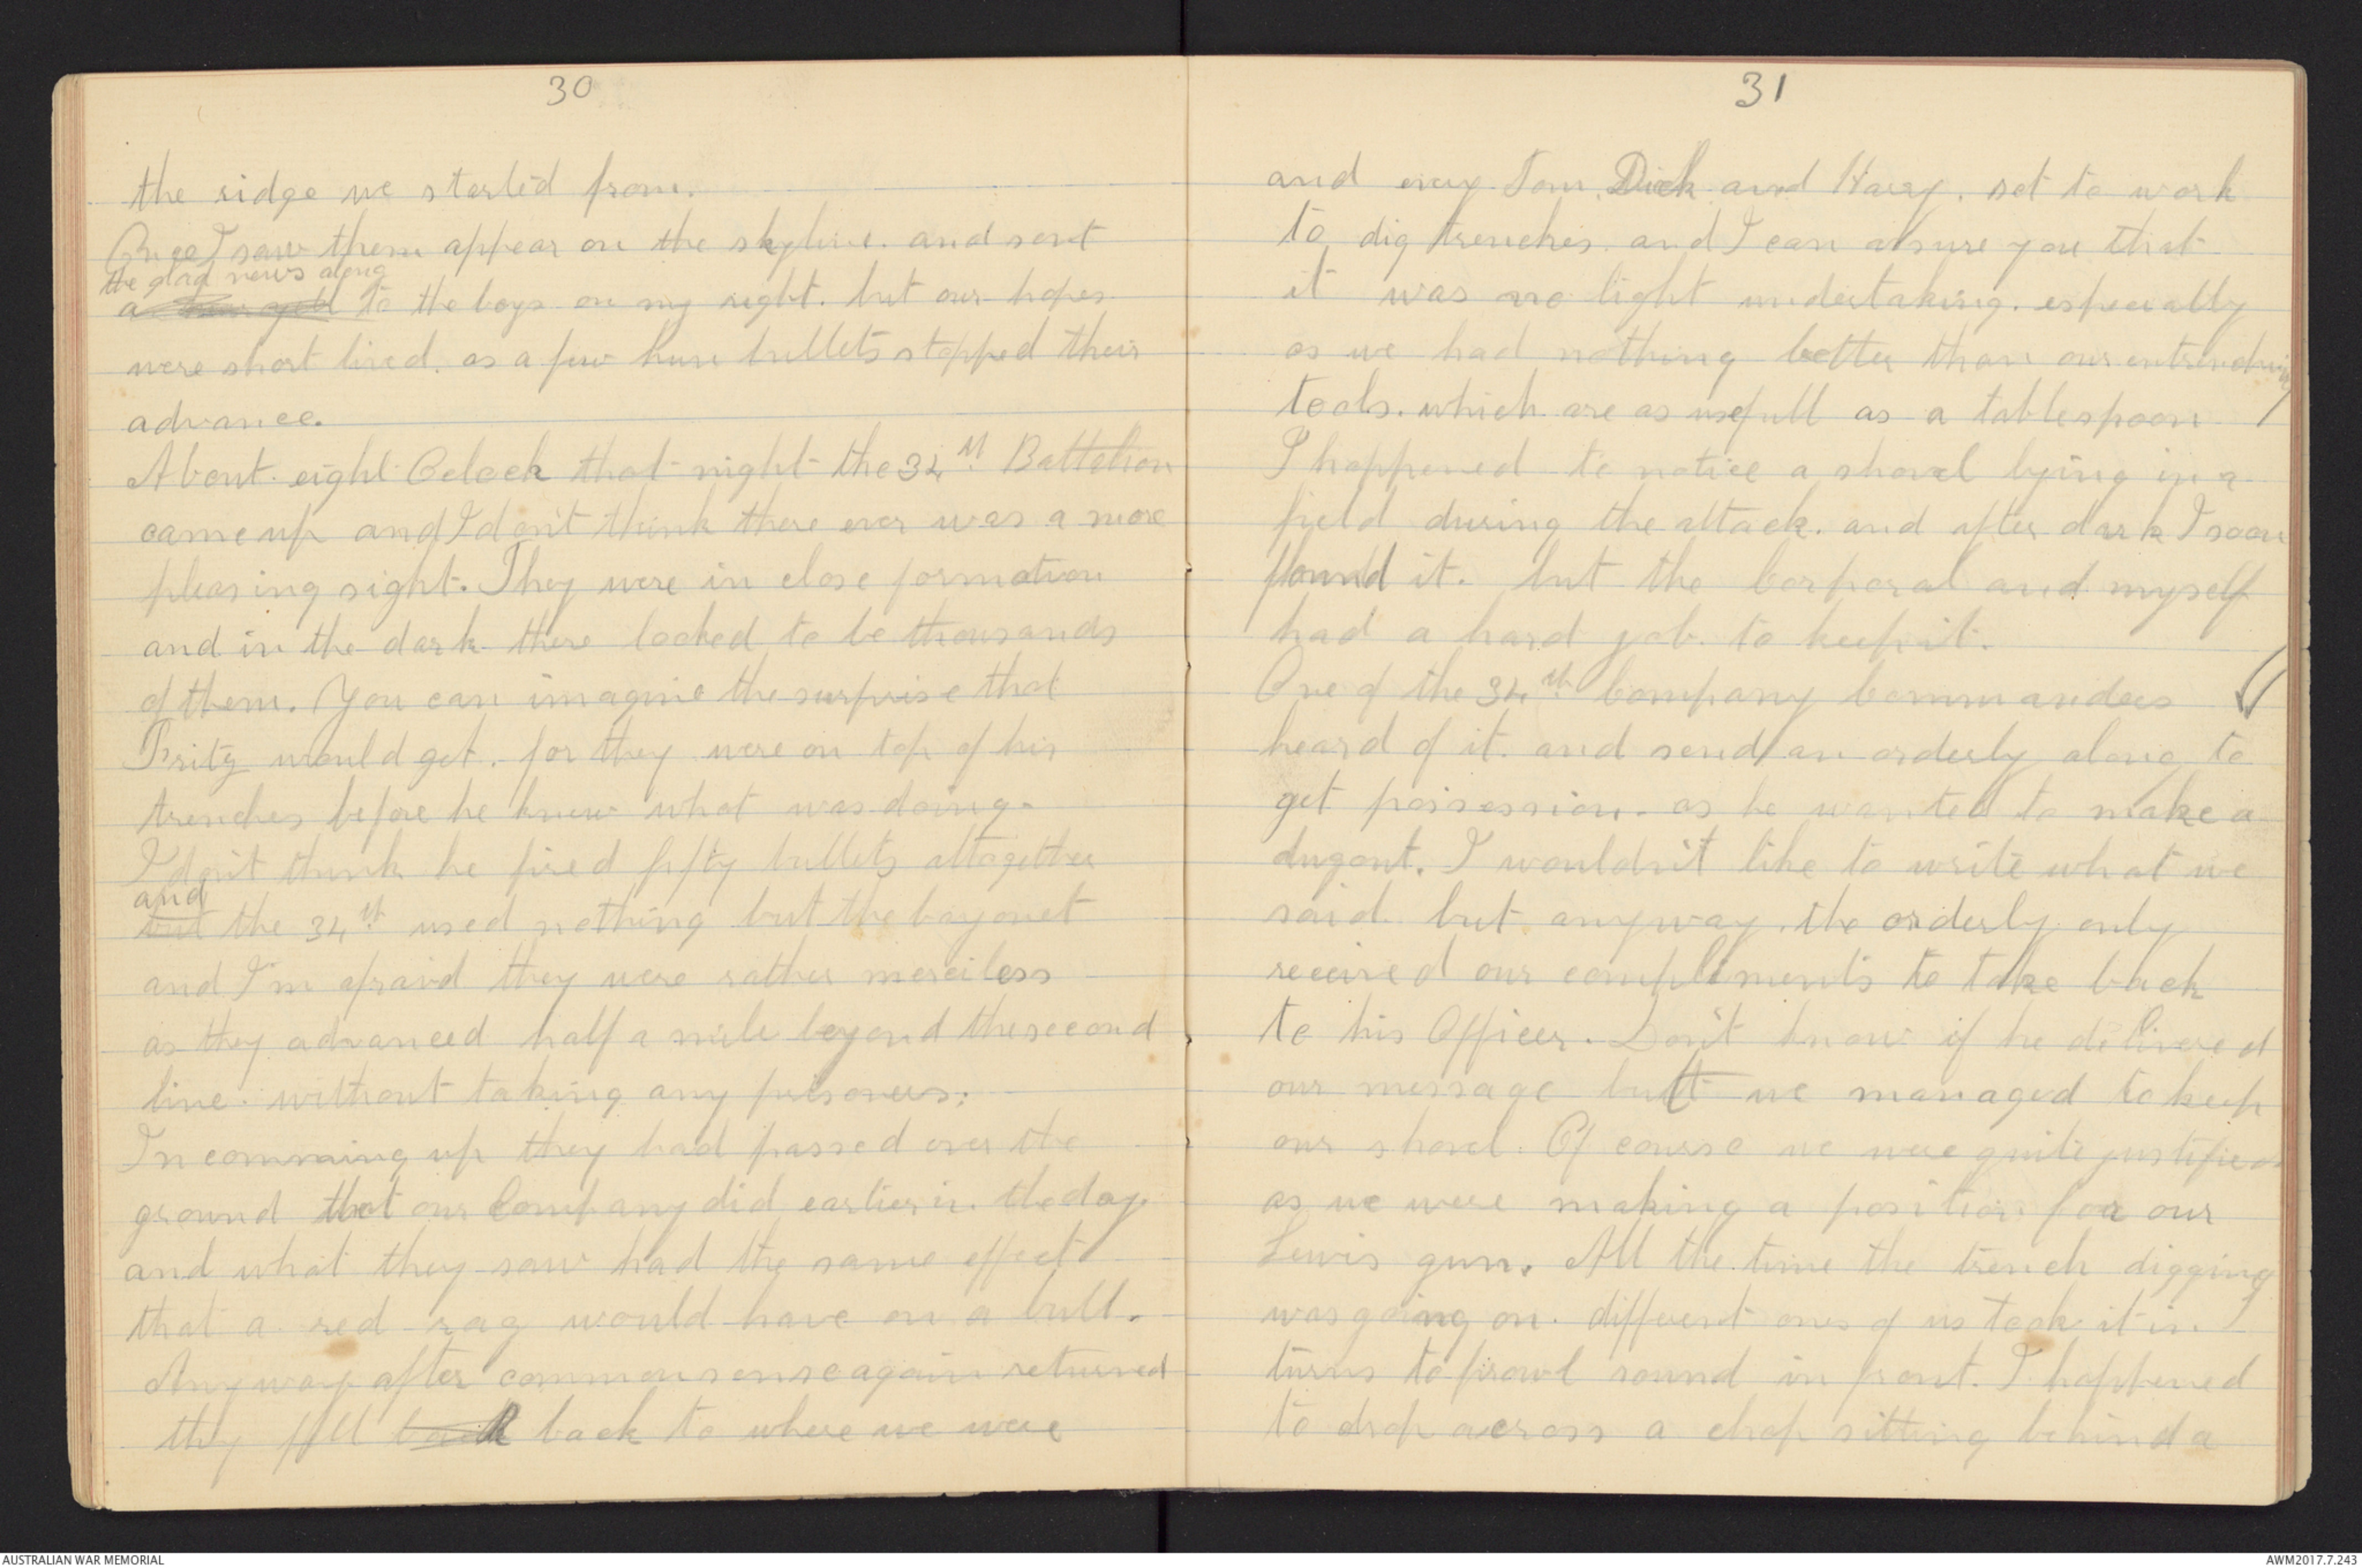 30
the ridge we started from.
Once I saw them appear on the skyline. and sent
the glad news along
a to the boys on my right. but our hopes
were short lived. as a few hun bullets stopped their
advance.
About eight Oclock that night the 34th Battalion
came up and I don't think there ever was a more
pleasing sight. They were in close formation
and in the dark there looked to be thousands
of them. You can imagine the surprise that
Fritz would get. for they were on top of his
trenches before he knew what was doing.
I don't think he fired fifty bullets altogether
and
but the 34th used nothing but the bayonet
and I'm afraid they were rather merciless
as they advanced half a mile beyond the second
line. without taking any prisoners.
In comming up they had passed over the
ground that our Company did earlier in the day.
and what they saw had the same effect
that a red rag would have on a bull.
Anyway after commonsense again returned
they fell back back to where we were
31
and every Tom, Dick and Harry. set to work
to dig trenches. and I can assure you that
it was no light undertaking. especially
as we had nothing better than our entrenching
tools. which are as usefull as a tablespoon
I happened to notice a shovel lying in a
field during the attack. and after dark I soon
found it. but the Corporal and myself
had a hard job. to keep it.
One of the 34th Company Commanders
heard of it. and send an orderly along to
get possession. as he wanted to make a
dugout. I wouldn't like to write what we
said. but anyway. the orderly only
received our compliments to take back
to his Officer. Don't know if he delivered
our message but we managed to keep
our shovel. Of course we were quite justified
as we were making a position for our
Lewis gun. All the time the trench digging
was going on. different ones of us took it in
turns to prowl round in front. I happened
to drop across a chap sitting behind a
AUSTRALIAN WAR MEMORIAL
AWM2017.7.243